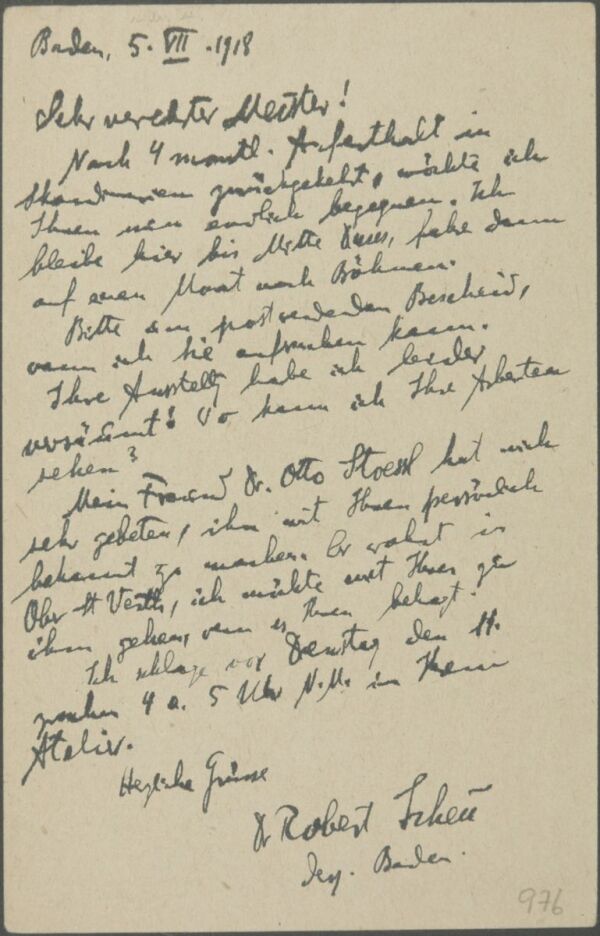 Baden, 5. VII. 1918
Sehr verehrter Meister!
Nach 4 monatl. Aufenthalt in
Skandinavien zurückgekehrt, möchte ich
Ihnen nun endlich begegnen. Ich
bleibe hier bis Mitte dieses, fahre dann
auf einen Monat nach Böhmen.
Bitte um postwendenden Bescheid,
wann ich Sie aufsuchen kann.
Ihre Ausstellg habe ich leider
versäumt! Wo kann ich Ihre Arbeiten
sehen?
Mein Freund Dr. Otto Stoessl hat mich
sehr gebeten, ihn mit Ihnen persönlich
bekannt zu machen. Er wohnt in
Ober St Veith, ich möchte mit Ihnen zu
ihm gehen, wenn es Ihnen behagt.
Ich schlage vor Dienstag den
zwischen 4 u. 5 Uhr N.M. in Ihrem
Atelier.
Herzliche Grüsse
Dr Robert Scheu
Baden.
976